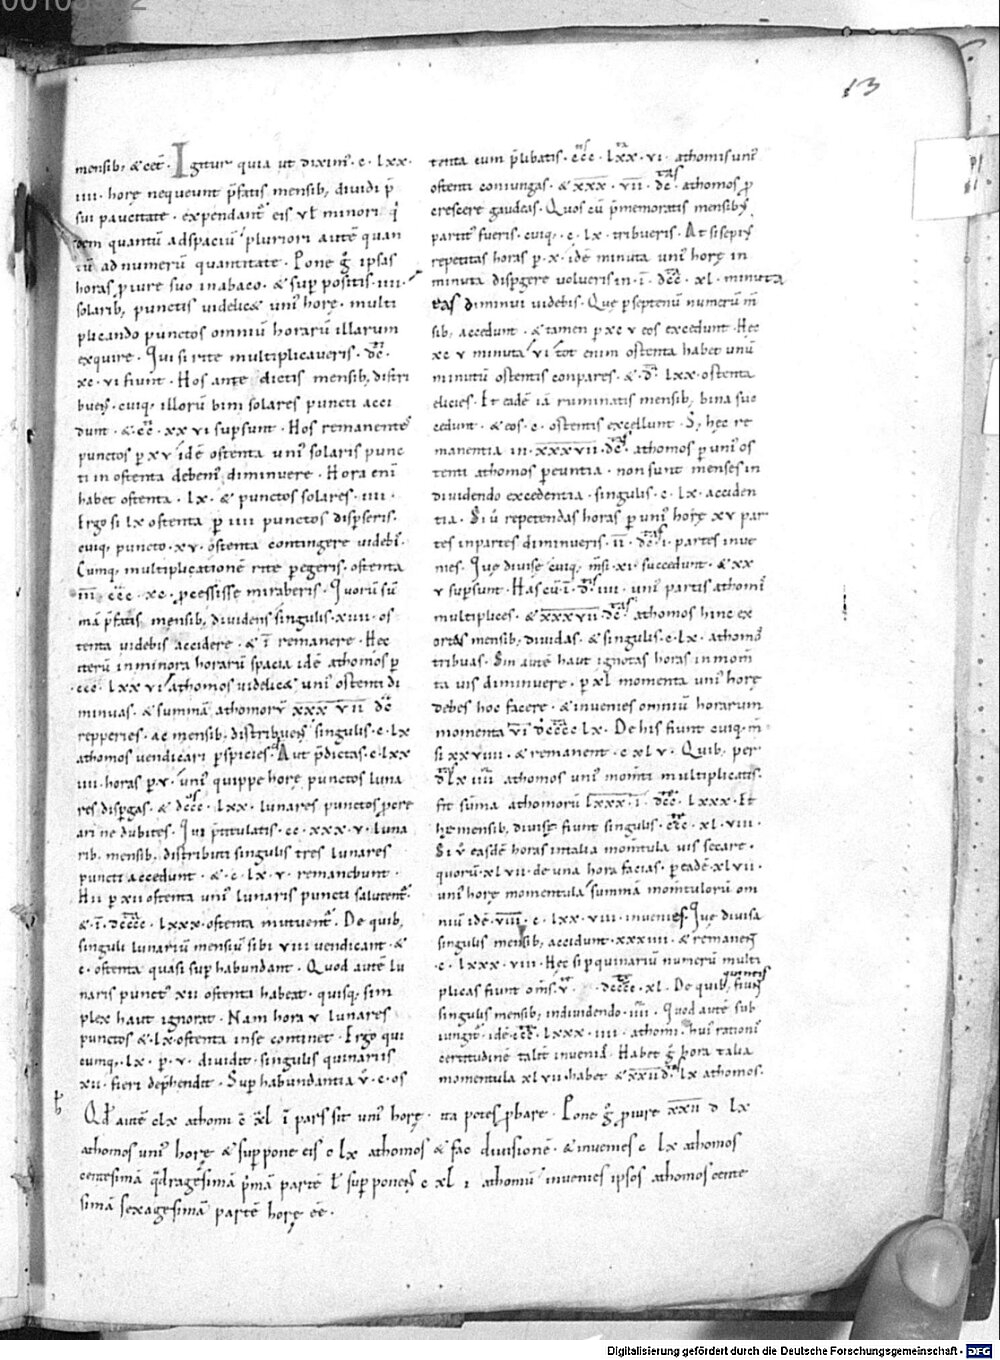 13
mensib; & cet̃. Igitur quia ut dixim᾽. c. lxx.
iiii. horę nequeunt p̃fatis mensib; diuidi p̃
sui paucitate. expendant᾽ eis uł minori q̇
dem quantũ ad spaciũ pluriori autẽ quan
tũ ad numerũ quantitate. Pone g̊ ipsas
horas p iure suo in abaco. & sup positis. iiii.
solarib; punctis uidelic& uni᾽ horę. multi
plicando punctos omniũ horarũ illarum
exquire. Qui si rite multiplicaueris. dc̃.
xc. vi fiunt. Hos ante dictis mensib; distri
buens. cuiq; illorũ bini solares puncti acci
dunt. & cc̃. xx vi supsunt. Hos remanentes
punctos p xv idẽ ostenta uni᾽ solaris punc
ti in ostenta debem᾽ diminuere. Hora enĩ
habet ostenta. lx. & punctos solares. iiii.
Ergo si lx ostenta p iiii punctos dispseris.
cuiq; puncto. xv. ostenta contingere uidebĩ.
Cumq; multiplicationẽ rite pegeris. ostenta
iii̅. ccc. xc. pcessisse miraberis. Quorũ sũ
mã p̃fatis mensib; diuidens singulis. xiiii. os
tenta uidebis accidere. & ĩ remanere. Hec
iterũ in minora horarũ spacia idẽ athomos p
ccc. lxx vi athomos uidelic& uni᾽ ostenti di
minuas. & summã athomorũ xxx̅ vii̅ dc̃
repperies. ac mensib; distribuens singulis. c. lx
athomos uendicari pspicies. Aut p̃dictas. c. lxx
iiii. horas p v. uni᾽ quippe horę punctos luna
res dispgas. & dccc. lxx. lunares punctos pcre
ari ne dubites. Qui p̃titulatis. cc. xxx. v. luna
rib; mensib; distributi singulis tres lunares
puncti accedunt. & c. lx. v. remanebunt.
Hii p xii ostenta uni᾽ lunaris puncti salutent᾽.
& ĩ. dcccc. lxxx. ostenta mutuent᾽. De quib;
singuli lunariũ mensiũ sibi viii uendicant. &
c. ostenta quasi sup habundant. Quod autẽ lu
naris punct᾽ xii ostenta habeat. quisq; sim
plex haut ignorat. Nam hora v lunares
punctos & lx ostenta in se continet. Ergo qui
cumq; lx. p. v. diuidit. singulis quinariis
xii. fieri dep̃hendit. Sup habundantia v̊. c. os
tenta cum p̃libatis. ccc. lxx. vi. athomis uni᾽
ostenti coniungas. & xxx̅. vii̅. dc̃. athomos p
crescere gaudeas. Quos cũ p̃memoratis mensib;
partit᾽ fueris. cuiq;. c. lx. tribueris. At si sepi᾽
repetitas horas p. x. idẽ minuta uni᾽ horę in
minuta dispgere uolueris in. ĩ. dcc̃. xl. minuta
eas diminui uidebis. Que p septenũ numerũ m̃
sib; accedunt. & tamen p xc v eos excedunt. Hec
xc v minuta vi tot enim ostenta habet unũ
minutũ ostentis conpares. & d̃. lxx. ostenta
elicies. Et eadẽ iã ruminatis mensib; bina suc
cedunt. & eos. c. ostentis excellunt. S; hec re
manentia in. xxxvii̅. dc̃. athomos p uni᾽ os
tenti athomos peuntia. non sunt menses in
diuidendo excedentia. singulis. c. lx. acciden
tia. Si ũ repetendas horas p uni᾽ horę xv par
tes in partes diminueris. ii̅. dc̃. i. partes inue
nies. Que diuise cuiq; m̃si. xi. succedunt. & xx
v supsunt. Has cũ. ĩ. d̃. iiii. uni᾽ partis athomi
multiplices. & xxxvii̅ dc̃ athomos hinc ex
ortos mensib; diuidas. & singulis. c. lx. athomos
tribuas. Sin autẽ haut ignotas horas in mom̃
ta uis diminuere. p xl momenta uni᾽ horę
debes hoc facere. & inuenies omniũ horarum
momenta vi̅ dcccc lx. De his fiunt cuiq; m̃
si xxviiii. & remanent. c xl v. Quib; per
d̃ lx iiii athomos uni᾽ mom̃ti multiplicatis.
fit sũma athomorũ lxxx̅. i̅. dcc. lxxx. Et
hęc mensib; diuisę fiunt singulis. ccc. xl. viii.
Si v̊ easdẽ horas in talia mom̃tula uis secare.
quorũ xl vii. de una hora facias. p eadẽ xl vii.
uni᾽ horę momentula summã mom̃tulorũ om
niũ idẽ viii̅. c. lxx. viii. inuenies. Que diuisa
singulis mensib; accidunt. xxxiiii. & remanen̄
c. lxxx. viii. Hec si p quinariũ numerũ multi
plicas fiunt om̃s. dcccc. xl. De quib; fiunt quinq;
singulis mensib; indiuidendo. iiii. Quod autẽ sub
iungit᾽ idẽ. ccc. lxxx. iiii. athomi. hui᾽ rationi᾽
certitudinẽ talit̃ inueniẽ. Habet g̊ hora talia
momentula xl vii. habet & xxii̅ d̃ lx athomos.
Qđ autẽ clx athomi c̃ xl ĩ pars sit uni᾽ horę. ita potes pbare. Pone g̊ p iure xxii̅ d lx
athomos uni᾽ horę & suppone eis c lx athomos & fac diuisionẽ. & inuenies c lx athomos
centesimã q̃dragesimã p̃mã partẽ ł supponens c xl i athomũ inuenies ipsos athomos cente
simã sexagesimã partẽ horę eẽ.
Digitalisierung gefördert durch die Deutsche Forschungsgemeinschaft - DFG